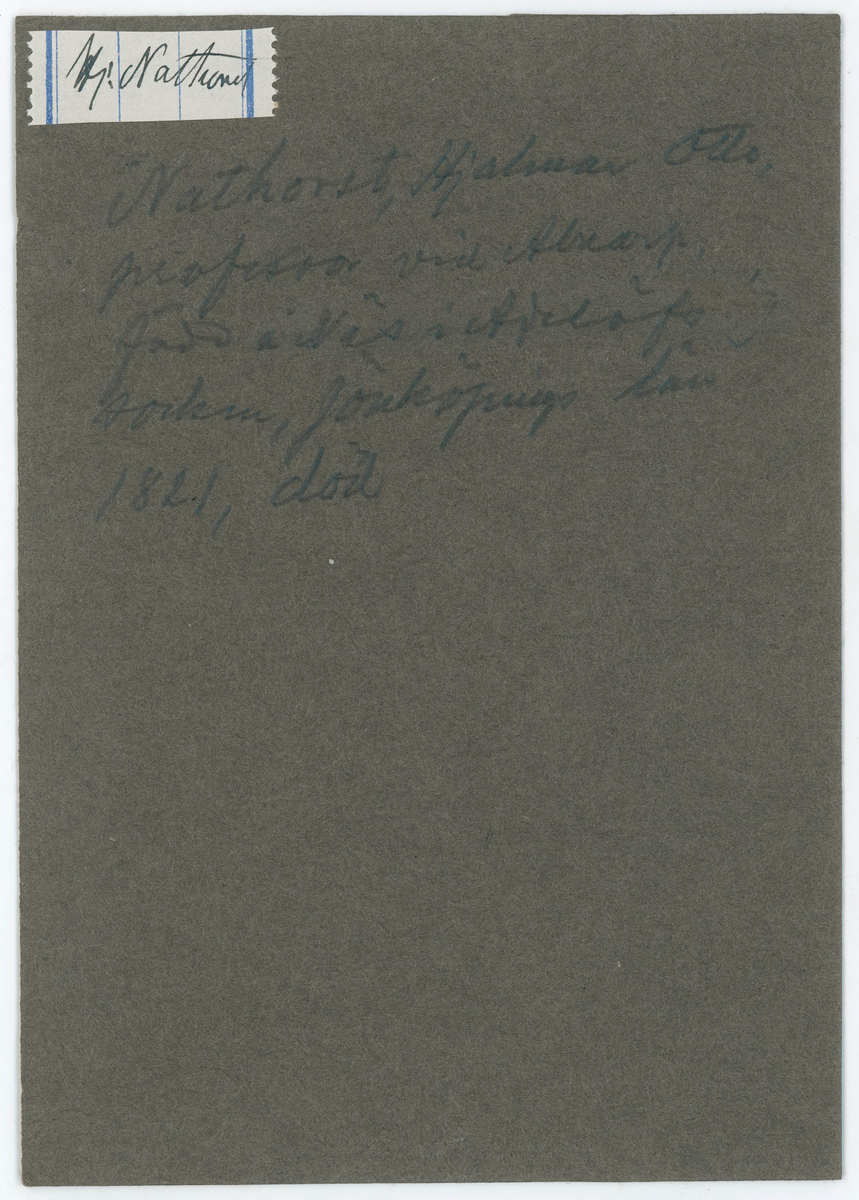 Hj. Nathorst
Nathorst, Hjalmar Otto,
professor vid Alnarp.
född å Näs i Adelöfs
socken, Jönköpings län
1821, död